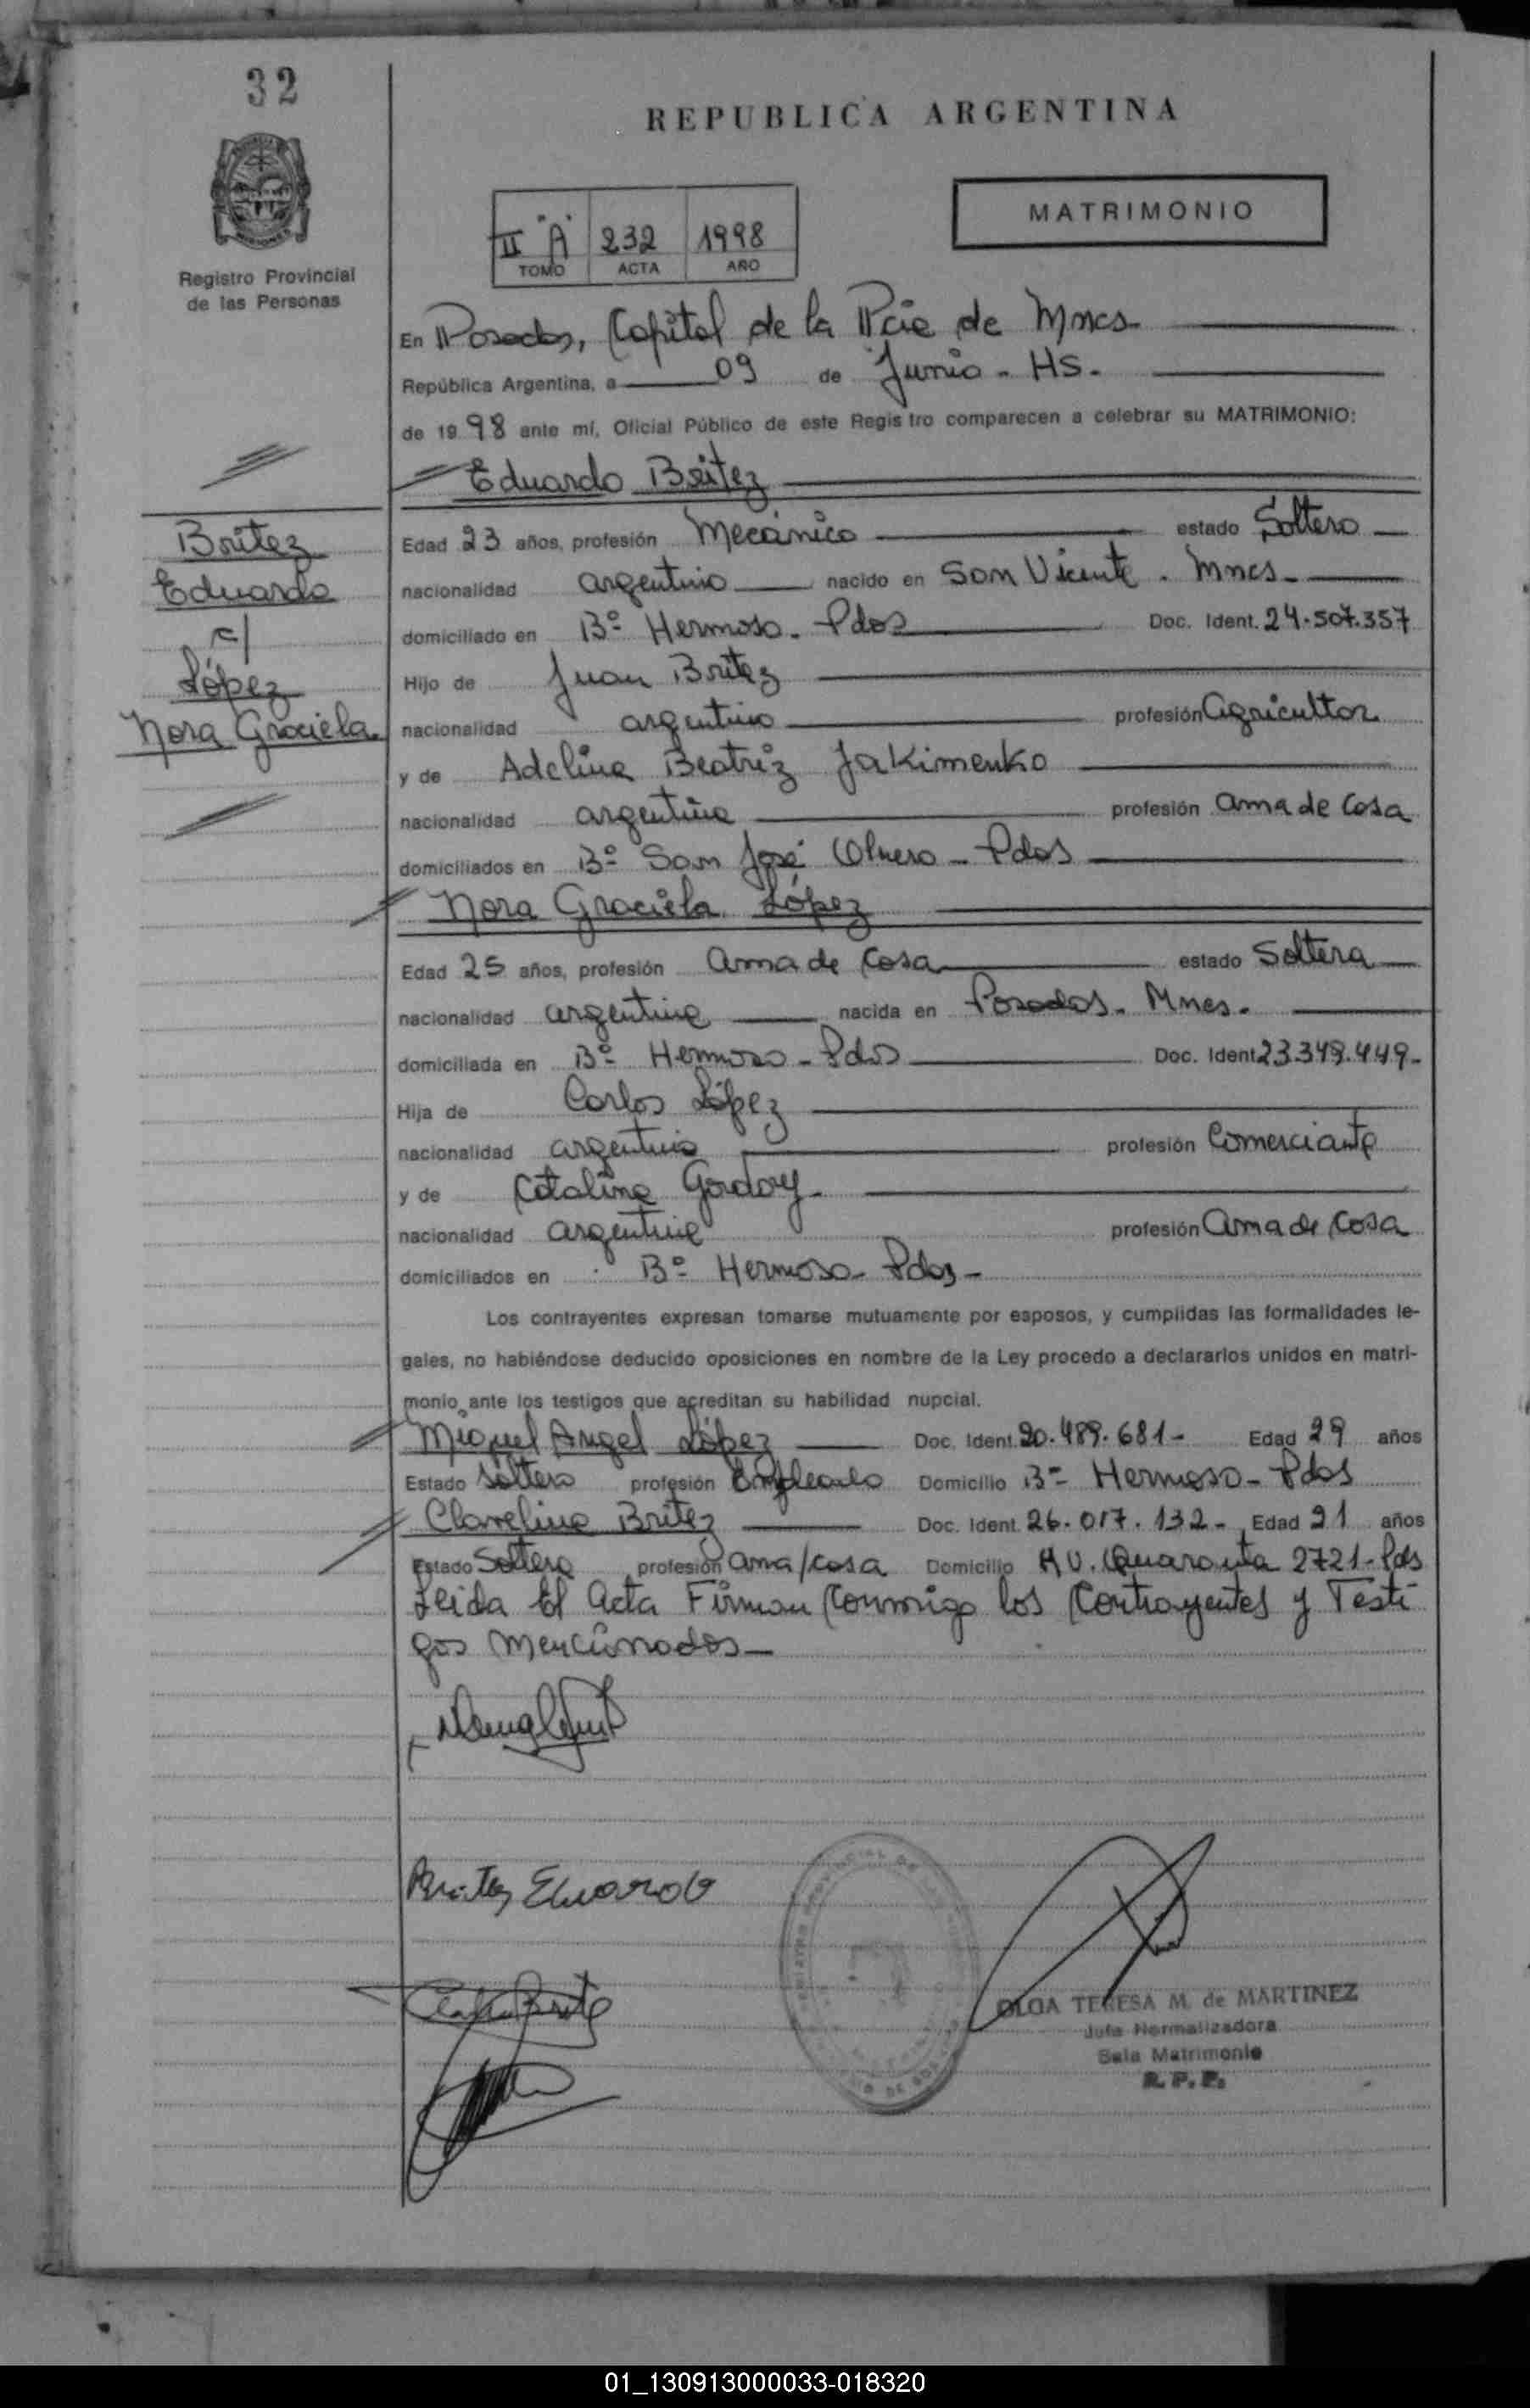 32
REPUBLICA ARGENTINA
Registro Provincial
de las Personas
II "A" 232 1998
TOMO ACTA AÑO
MATRIMONIO
En Posadas, Capital de la Pcie de Mnes
República Argentina, a 09 de Junio - HS.
de 1998 ante mí, Oficial Público de este Registro comparecen a celebrar su MATRIMONIO:
Eduardo Britez
Britez
Eduardo
c/
López
Nora Graciela
Edad 23 años, profesión Mecánico estado Soltero
nacionalidad argentino nacido en San Vicente. Mnes
domiciliado en Bº Hermoso - Pdas Doc. Ident. 24.507.357
Hijo de Juan Britez
nacionalidad argentino profesión agricultor
y de Adelina Beatriz Jakimenko
nacionalidad argentina profesión ama de Casa
domiciliados en Bº San José Obrero - Pdas
Nora Graciela López
Edad 25 años, profesión ama de Casa estado Soltera
nacionalidad argentina nacida en Posadas - Mnes.
domiciliada en Bº Hermoso - Pdas Doc. Ident 23.349.449-
Hija de Carlos López
nacionalidad argentino profesión Comerciante
y de Catalina Godoy
nacionalidad argentina profesión ama de Casa
domiciliados en Bº Hermoso - Pdas -
Los contrayentes expresan tomarse mutuamente por esposos, y cumplidas las formalidades le-
gales, no habiéndose deducido oposiciones en nombre de la Ley procedo a declararlos unidos en matri-
monio ante los testigos que acreditan su habilidad nupcial.
Miguel Angel López Doc. Ident. 20.489.681- Edad 29 años
Estado Soltero profesión Empleado Domicilio Bº Hermoso - Pdas
Clavelina Britez Doc. Ident. 26.017.132- Edad 21 años
Estado Soltera profesión ama/casa Domicilio AV. Quaranta 2721-Pds
Leida El Acta Firman Conmigo los Contrayentes y Testi-
gos Mencionados
Britez Eduardo
OLGA TERESA M. de MARTINEZ
Jefa Normalizadora
Sala Matrimonio
R. P. P.
01_130913000033-018320